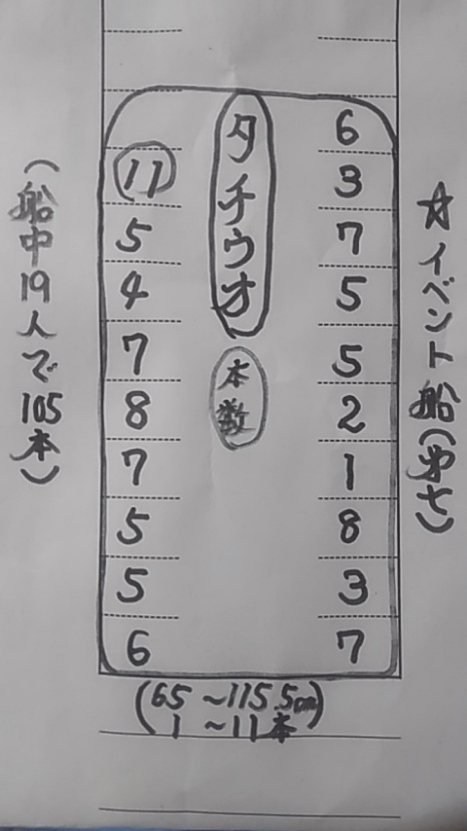 ☆イベント船(第七)
6
3
7
5
5
2
1
8
3
7
タチウオ
本数
11
5
4
7
8
7
5
5
6
(船中19人で105本)
(65~115.5cm)
1~11本